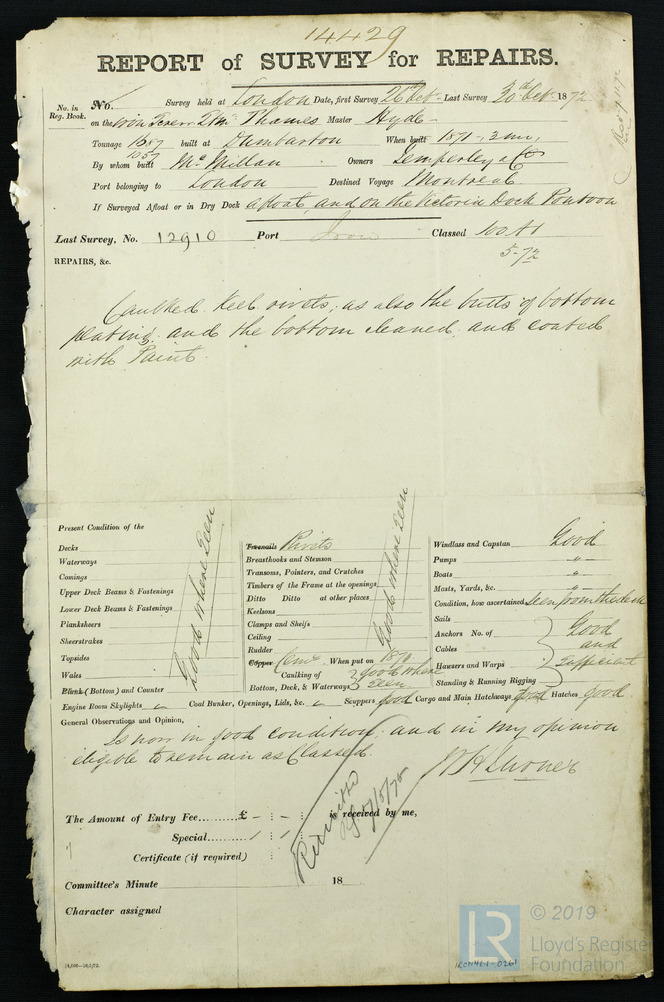 14429
REPORT of SURVEY for REPAIRS.
No. in Reg. Book.
No. Survey held at London Date, first Survey 26th Oct. Last Survey 30th Oct. 1872
on the Iron Screw Str Thames Master Hyde
Tonnage 1687 built at Dumbarton When built 1871-2 mo.
1057
By whom built McMillan Owners Temperley & Co
Port belonging to London Destined Voyage Montreal
If Surveyed Afloat or in Dry Dock afloat and on the Victoria Dock Pontoon
Last Survey, No. 12910 Port Iron Classed 100 A1
5-72
REPAIRS, &c.
Caulked Keel rivets, as also the butts of bottom
plating, and the bottom cleaned and coated
with Paint.
Present Condition of the
Decks
Waterways
Comings
Upper Deck Beams & Fastenings
Lower Deck Beams & Fastenings
Planksheers
Sheerstrakes
Topsides
Wales
Plank (Bottom) and Counter
Good where seen
Engine Room Skylights " Coal Bunker, Openings, Lids, &c. " Scuppers good Cargo and Main Hatchways good Hatches good
Treenails Rivets
Breasthooks and Stemson
Transoms, Pointers, and Crutches
Timbers of the Frame at the openings
Ditto Ditto at other places
Keelsons
Clamps and Shelfs
Ceiling
Rudder
Good where seen
Copper Cemt When put on 1870
Caulking of
Bottom, Deck, & Waterways
good where seen
Windlass and Capstan Good
Pumps "
Boats "
Masts, Yards, &c. "
Condition, how ascertained Seen from the deck
Sails
Anchors No. of
Cables
Hawsers and Warps
Standing & Running Rigging
Good
and
Sufficient
General Observations and Opinion,
Is now in good condition, and in my opinion
eligible to remain as Classed.
The Amount of Entry Fee £ - : - : is received by me,
Special
Certificate (if required)
Committee's Minute 18
Character assigned
© 2019
Lloyd's Register
Foundation
LR